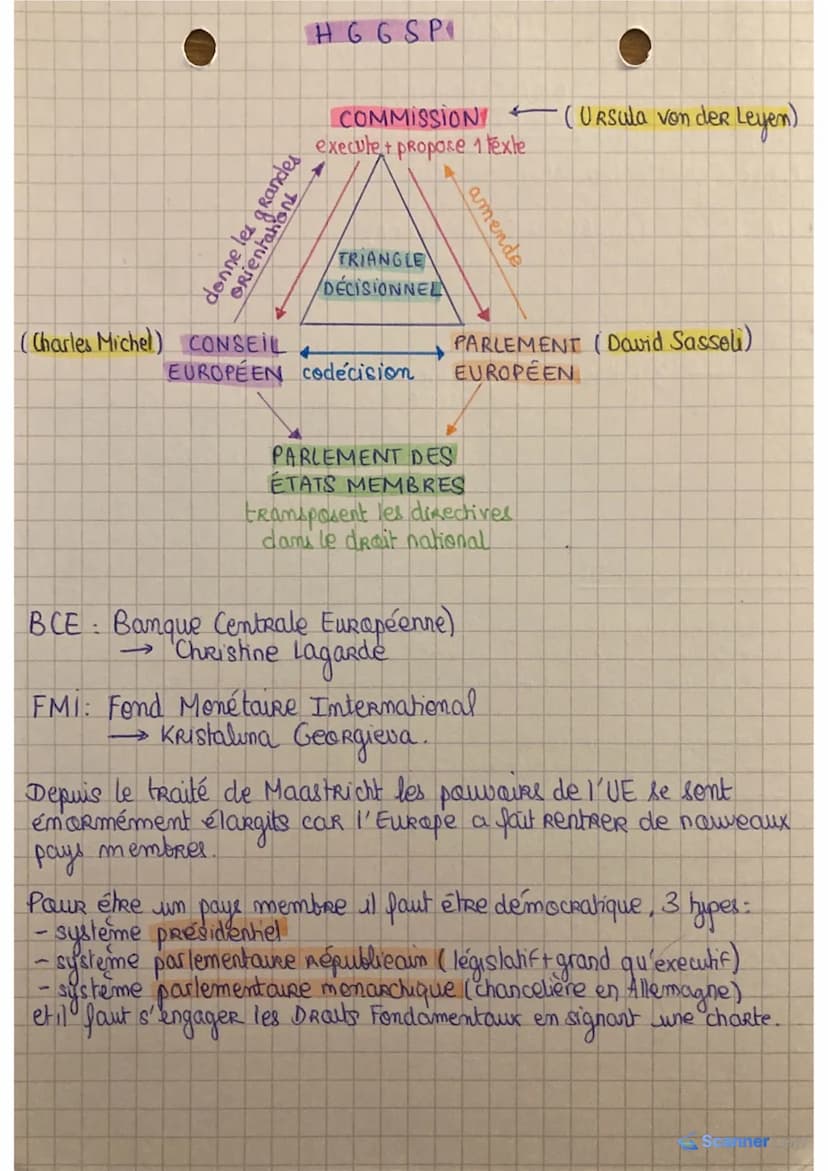 HGGSP
COMMISSION ← (Ursula von der Leyen)
execute + propose 1 texte
donne les grandes
orientations
amende
TRIANGLE
DÉCISIONNEL
(Charles Michel) CONSEIL
EUROPÉEN
codécision
PARLEMENT (David Sassoli)
EUROPÉEN
PARLEMENT DES
ÉTATS MEMBRES
transposent les directives
dans le droit national
BCE : Banque Centrale Européenne)
→ Christine Lagarde
FMI: Fond Monétaire International
→ Kristalina Georgieva.
Depuis le traité de Maastricht les pouvoirs de l'UE se sont
énormément élargits car l'Europe a fait rentrer de nouveaux
pays membres.
Pour être un pays membre il faut être démocratique, 3 types:
- système présidentiel
- système parlementaire républicain (législatif + grand qu'executif)
- système parlementaire monarchique (chancelière en Allemagne)
et il faut s'engager les Droits Fondamentaux en signant une charte.
Scanner